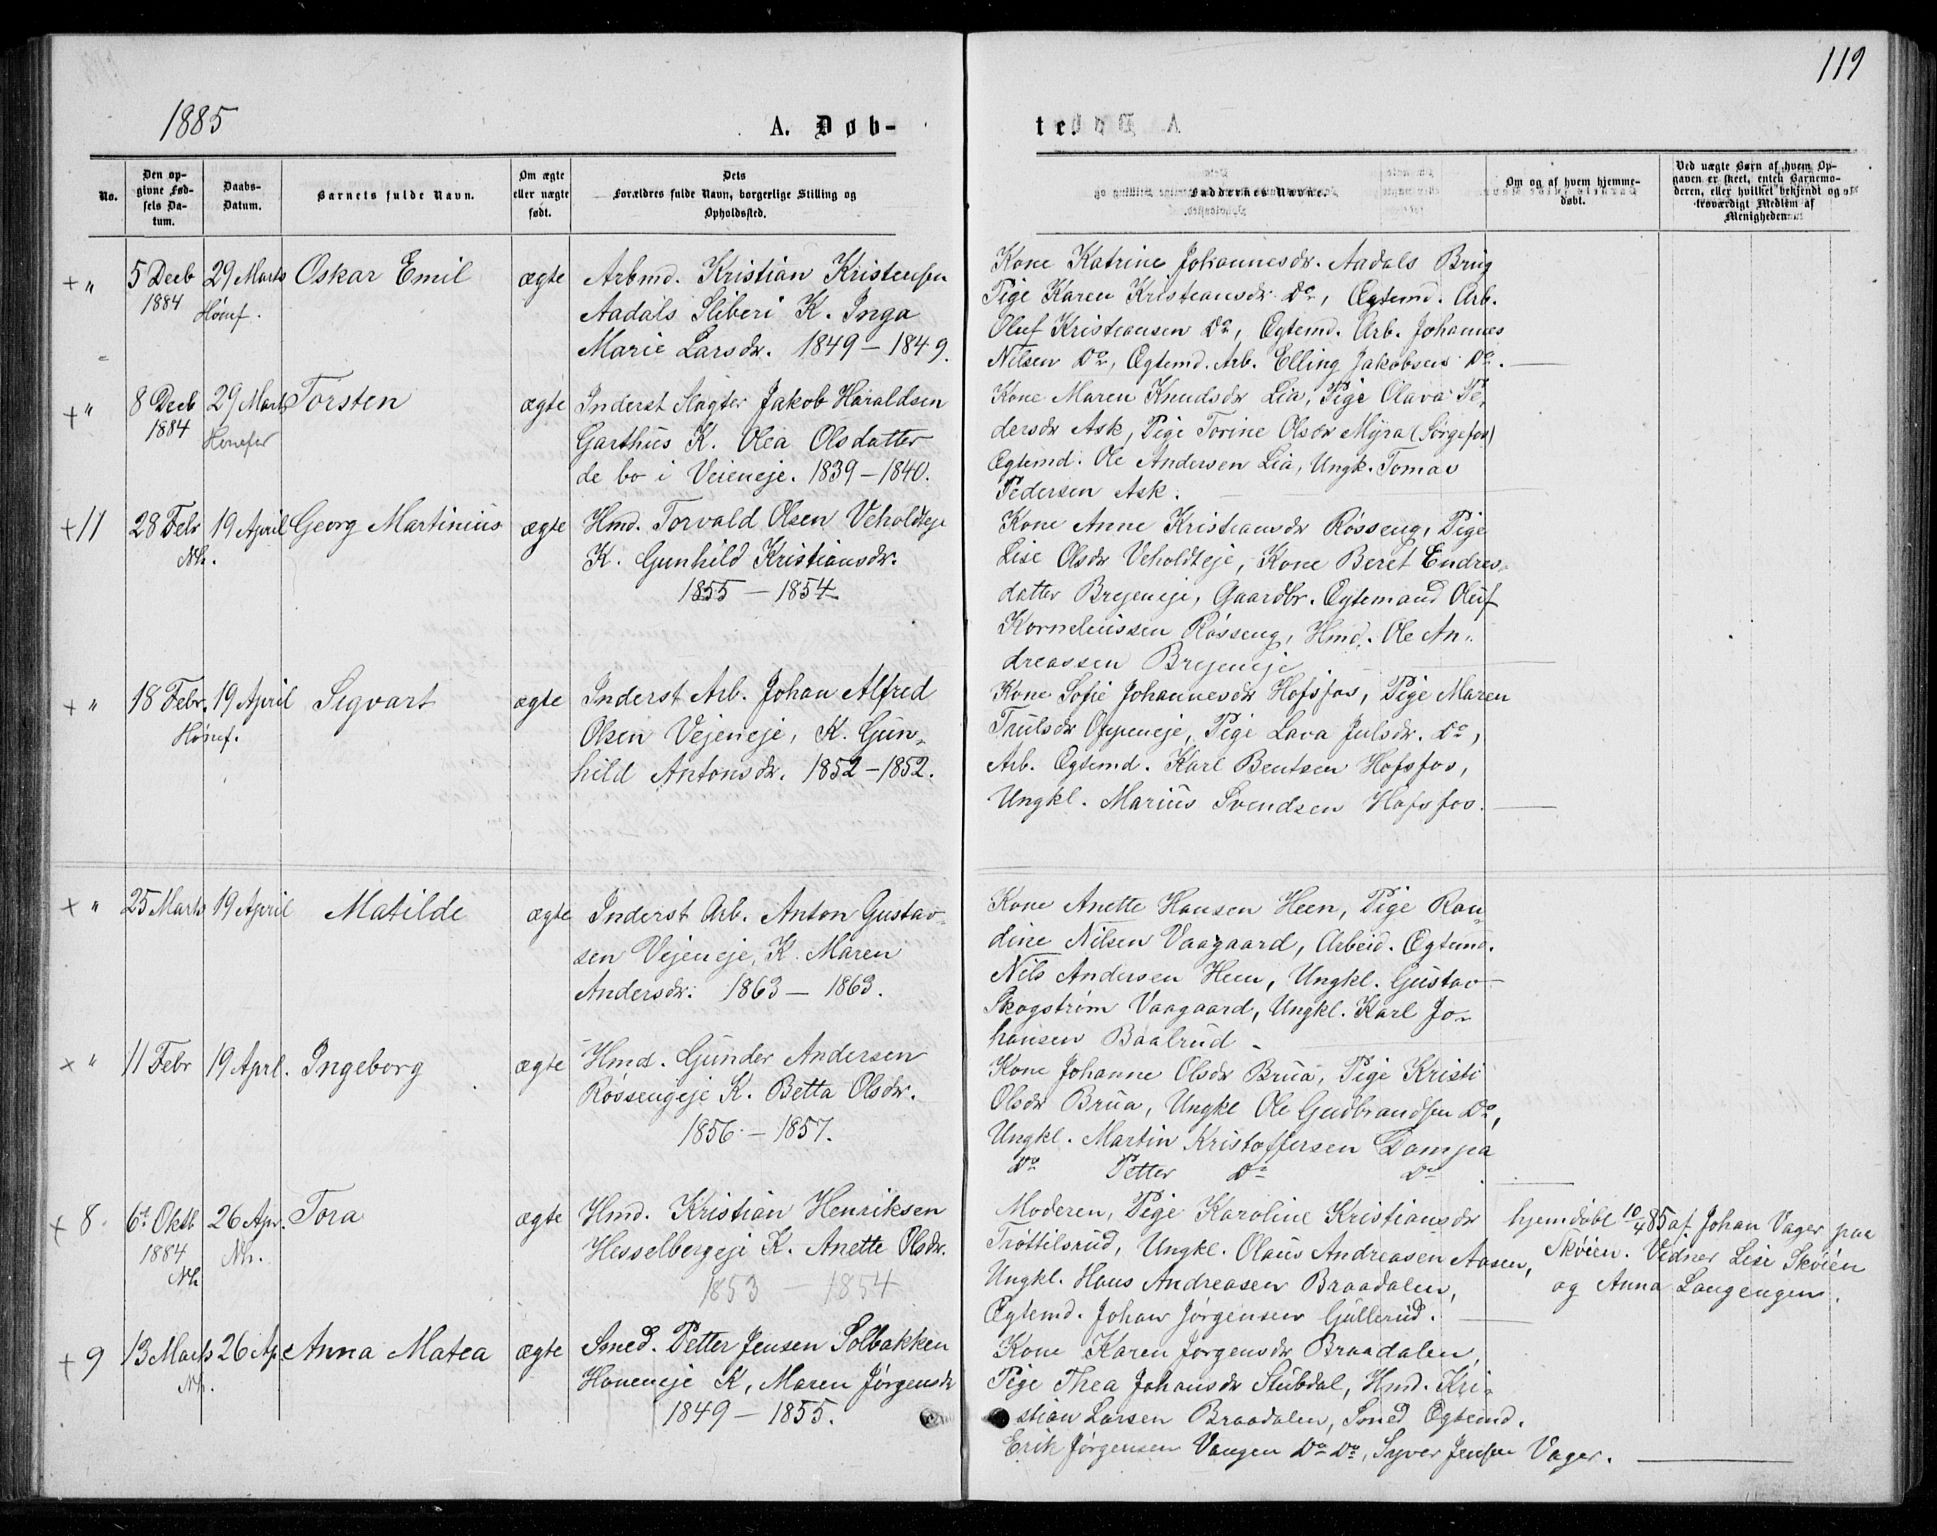 119
1885
A. Døb-
te.
No.
Den op-
givne Fød-
sels Da-
tum.
Daabs-
Datum.
Barnets fulde Navn.
Om ægte
eller nægte
født.
Dets
Forældres fulde Navn, borgerlige Stilling og
Opholdssted.
Faddernes Navne.
Om og af hvem hjemme-
døbt.
Ved uægte Børn af hvem Op-
gaven er skeet, enten Barnemo-
deren, eller hvilket bekjendt og
troværdigt Medlem af
Menigheden.
+ " 5 Decb 29 Marts Oskar Emil ægte Arbmd. Kristian Kristensen
1884 Hønef. Aadals Sliberi K. Inga
Marie Larsdr. 1849 – 1849.
Kone Katrine Johannesdr. Aadals Brug
Pige Karen Kristiansdr Do, Ægtemd. Arb.
Oluf Kristiansen Do, Ægtemd. Arb. Johannes
Nilsen Do, Ægtemd. Arb. Elling Jakobsen Do.
+ " 8 Decb 29 Marts Torsten ægte Inderst Slagter Jakob Haraldsen
1884 Honefos Garthus K. Olea Olsdatter
de bo i Veieneje. 1839 – 1840.
Kone Maren Knudsdr Lia, Pige Olava Pe-
dersdr Ask, Pige Torine Olsdr Myra (Sørgefos)
Ægtemd. Ole Andersen Lia, Ungk. Tomas
Pedersen Ask.
+ 11 28 Febr 19 April Georg Martinius ægte Hmd. Torvald Olsen Veholdteje
Nh. K. Gunhild Kristiansdr.
1855 – 1854
Kone Anne Kristiansdr Røsseng, Pige
Lise Olsdr Veholdteje, Kone Beret Endres-
datter Brejeneje, Gaardbr. Ægtemand Oluf
Korneliussen Røsseng, Hmd. Ole An-
dreassen Brejeneje
+ " 18 Febr. 19 April Sigvart ægte Inderst Arb. Johan Alfred
Hønef. Olsen Vejeneje, K. Gun-
hild Antonsdr. 1852 – 1852.
Kone Sofie Johannesdr Hofsfos, Pige Maren
Trulsdr Oppeneje, Pige Lava Julsdr. Do,
Arb. Ægtemd. Karl Bentsen Hofsfos,
Ungkl. Marius Svendsen Hofsfos.
× " 25 Marts 19 April Matilde ægte Inderst Arb. Anton Gustav-
sen Vejeneje, K. Maren
Andersdr. 1863 – 1863.
Kone Anette Hansen Heen, Pige Ran-
dine Nilsen Vaagaard, Arbeid. Ægtemd.
Nils Andersen Heen, Ungkl. Gustav
Skogstrøm Vaagaard, Ungkl. Karl Jo-
hansen Baalrud
× " 11 Febr 19 Aprl. Ingeborg ægte Hmd. Gunder Andersen
Røssengeje K. Betta Olsdr.
1856 – 1857.
Kone Johanne Olsdr Brua, Pige Kristi
Olsdr Brua, Ungkl Ole Gudbrandsen Do,
Ungkl. Martin Kristoffersen
Do Petter Do Do
+ 8 6t. Oktb 26 Apr. Tora ægte Hmd. Kristian Henriksen
1884 Nh. Hesselbergeje K. Anette Olsdr.
Nh 1853 – 1854
Moderen, Pige Karoline Kristiansdr
Trøttilsrud, Ungkl. Olaus Andreasen Aasen,
Ungkl. Hans Andreasen Braadalen,
Ægtemd. Johan Jørgensen Gullerud.
hjemdøbt 10/4 85 af Johan Vager paa
Skøien. Vidner Lise Skøien
og Anna Langengen.
+ 9 13 Marts 26 Ap. Anna Matea ægte Smed. Petter Jensen Solbakken
Nh. Honeneje K, Maren Jørgensdr
1849 – 1855.
Kone Karen Jørgensdr Braadalen,
Pige Thea Johansdr Slubdal, Hmd. Kri-
stian Larsen Braadalen, Smed Ægtemd.
Erik Jørgensen Vangen Do Do, Syver Jensen Vager.